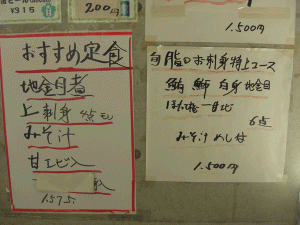 ¥315
200円
1.500円
おすすめ定食
地金目煮
上刺身 4点モリ
みそ汁
甘エビ入
1.575.
旬 脂のお刺身特上コース
鮪 鰤 白身 地金目
6点
みそ汁 めし付
1.500円